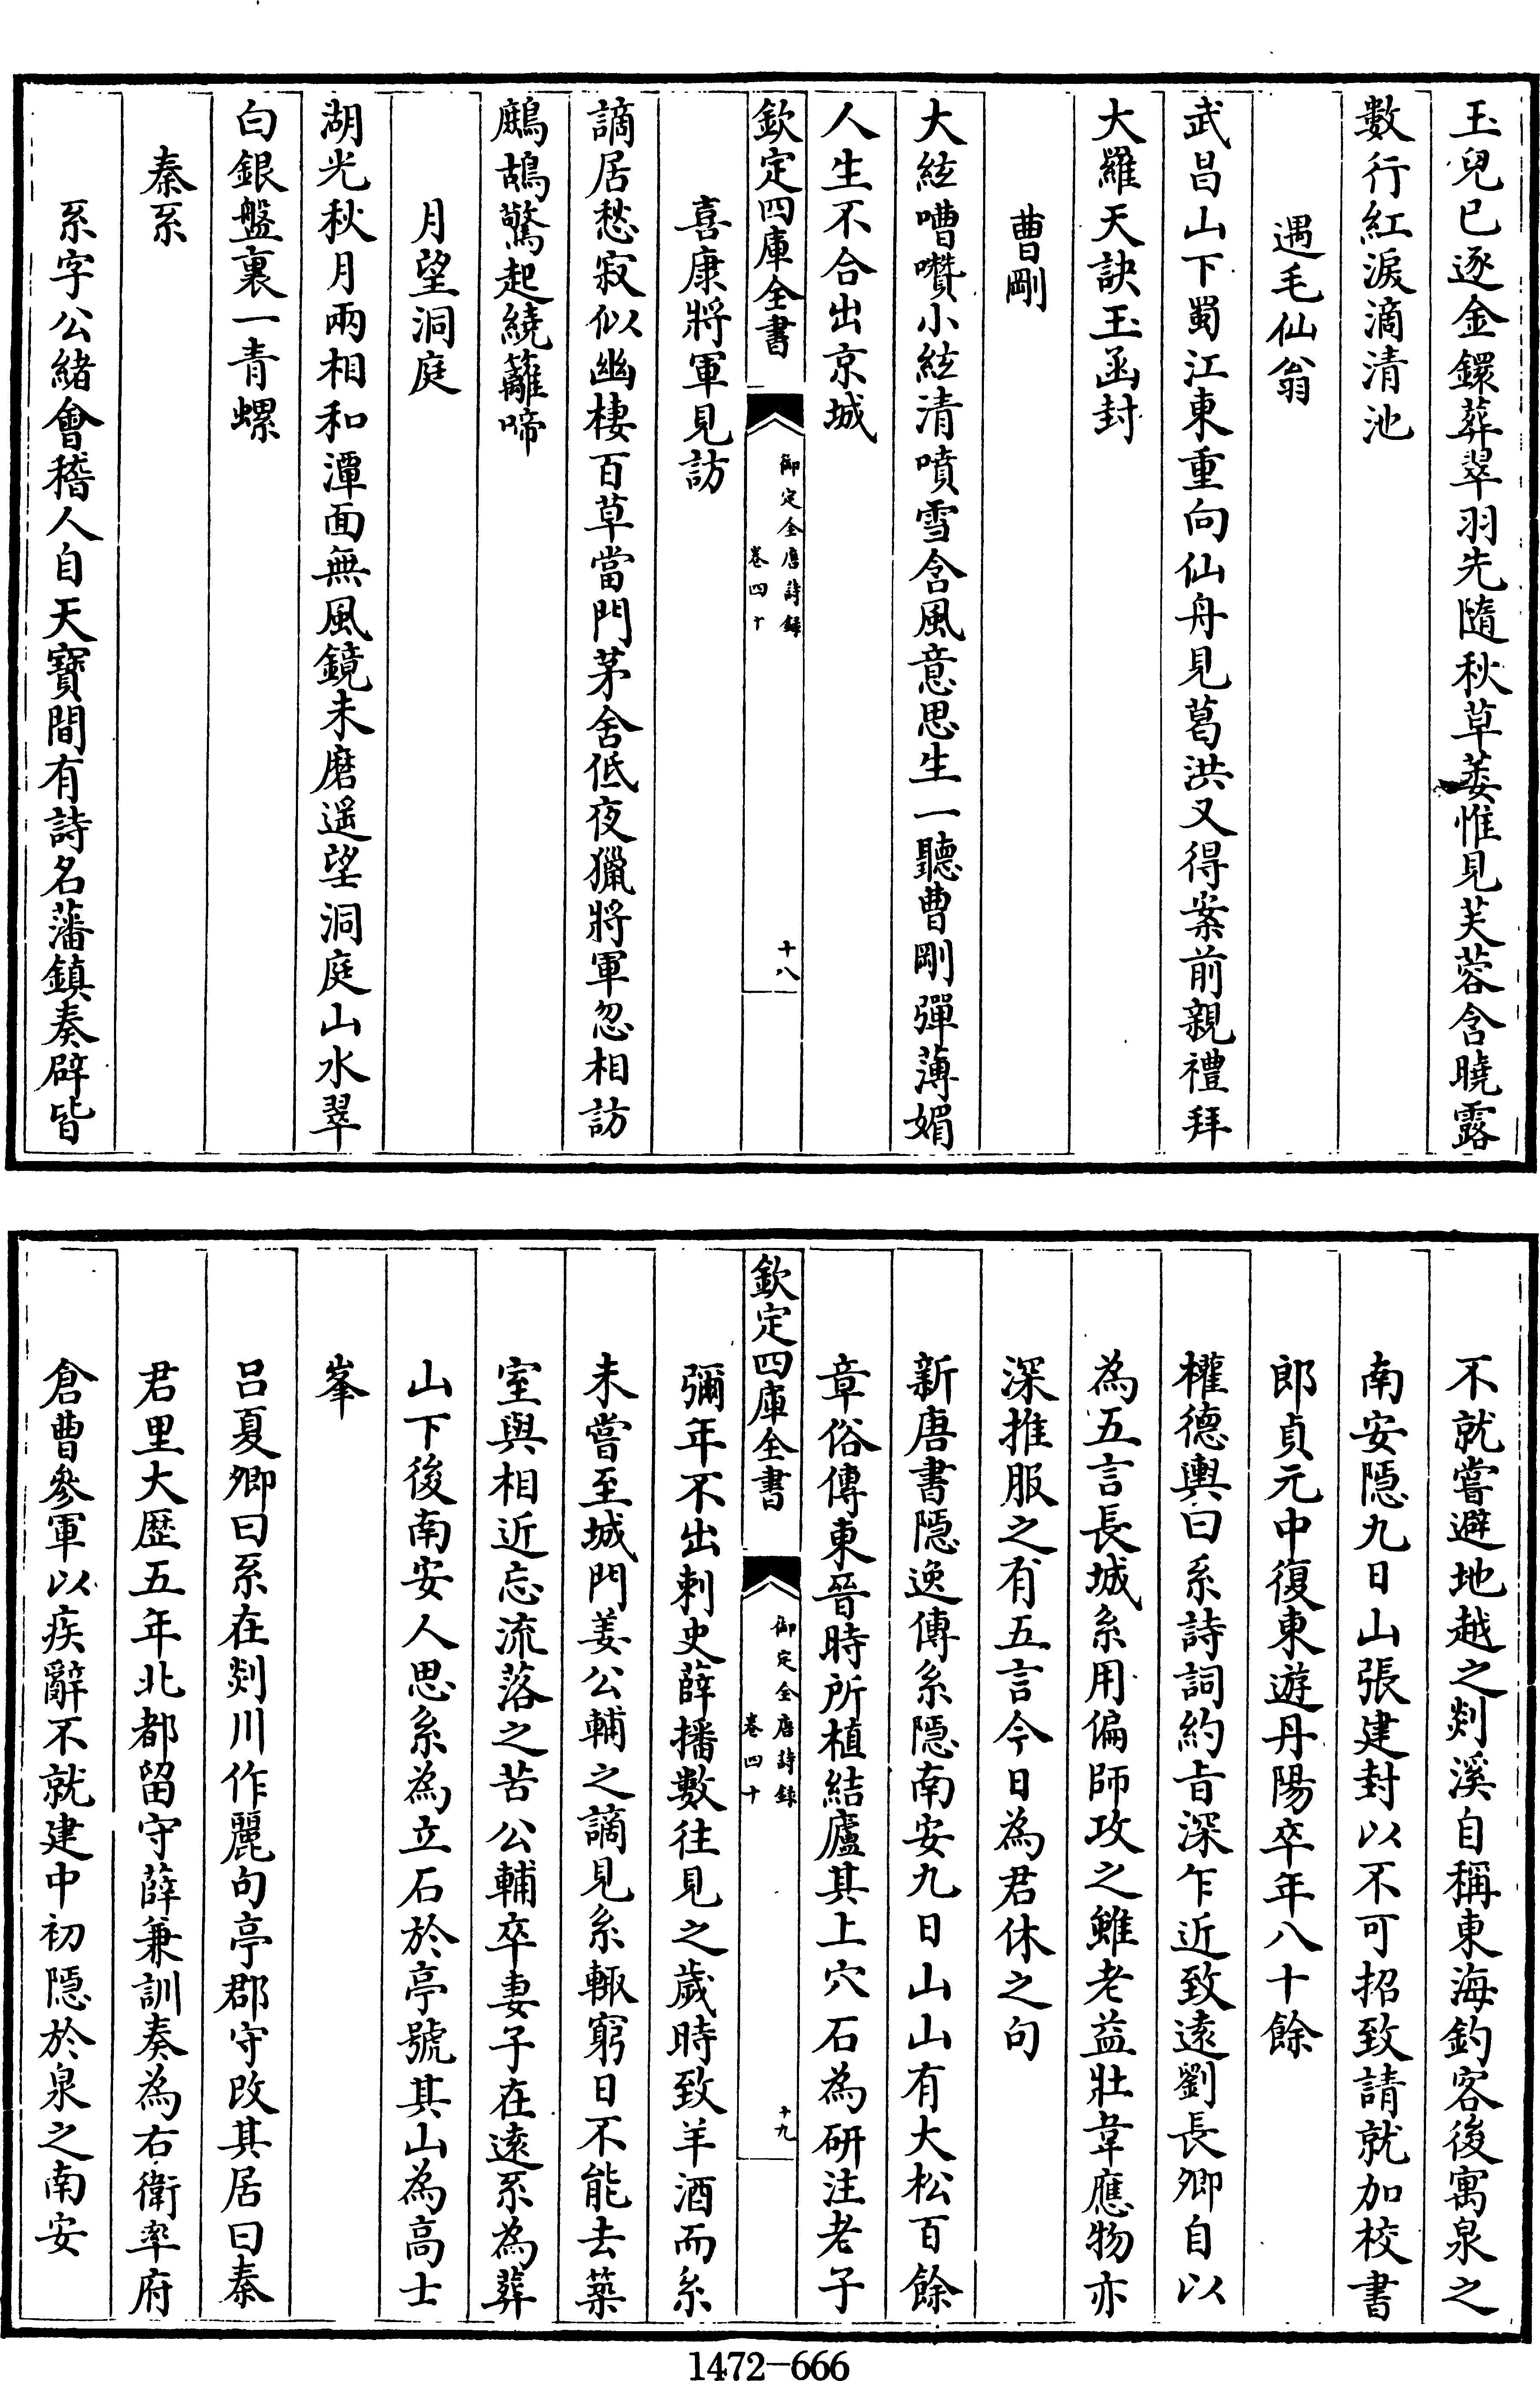 玉兒已逐金鐶葬翠羽先隨秋草萎惟見芙蓉含曉露
數行紅淚滴清池
遇毛仙翁
武昌山下蜀江東重向仙舟見葛洪又得案前親禮拜
大羅天訣玉函封
曹剛
大絃嘈囋小絃清噴雪含風意思生一聽曹剛彈薄媚
人生不合出京城
欽定四庫全書
御定全唐詩録
卷四十
十八
喜康將軍見訪
謫居愁寂似幽棲百草當門茅舍低夜獵將軍忽相訪
鷓鴣驚起繞籬啼
月望洞庭
湖光秋月兩相和潭面無風鏡未磨遥望洞庭山水翠
白銀盤裏一青螺
秦系
系字公緒會稽人自天寶間有詩名藩鎮奏辟皆
不就嘗避地越之剡溪自稱東海釣客後寓泉之
南安隱九日山張建封以不可招致請就加校書
郎貞元中復東遊丹陽卒年八十餘
權德輿曰系詩詞約旨深乍近致遠劉長卿自以
為五言長城系用偏師攻之雖老益壯韋應物亦
深推服之有五言今日為君休之句
新唐書隱逸傳系隱南安九日山山有大松百餘
章俗傳東晉時所植結廬其上穴石為研注老子
欽定四庫全書
御定全唐詩録
卷四十
十九
彌年不出刺史薛播數往見之歲時致羊酒而系
未嘗至城門姜公輔之謫見系輙窮日不能去築
室與相近忘流落之苦公輔卒妻子在遠系為葬
山下後南安人思系為立石於亭號其山為高士
峯
吕夏卿曰系在剡川作麗句亭郡守改其居曰秦
君里大歷五年北都留守薛兼訓奏為右衛率府
倉曹參軍以疾辭不就建中初隱於泉之南安
1472-666